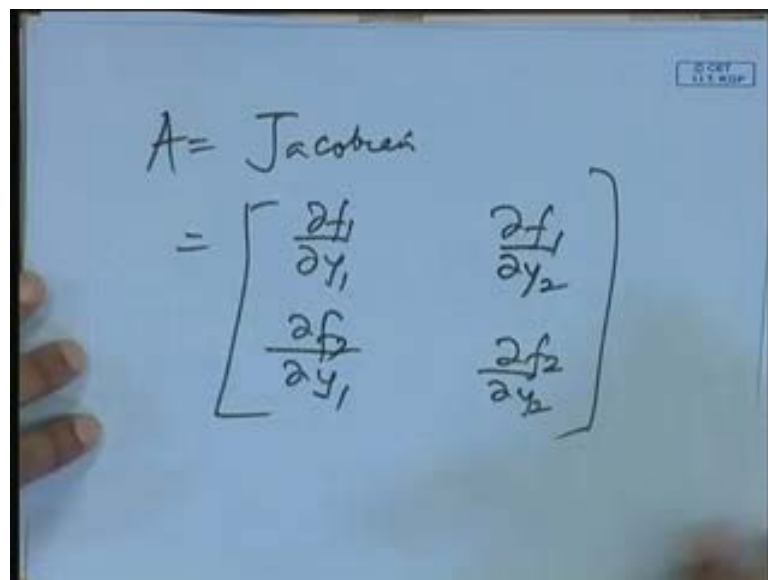 © CET
I.I.T. KGP
A = Jacobian
= [ ∂f₁/∂y₁ ∂f₁/∂y₂
∂f₂/∂y₁ ∂f₂/∂y₂ ]